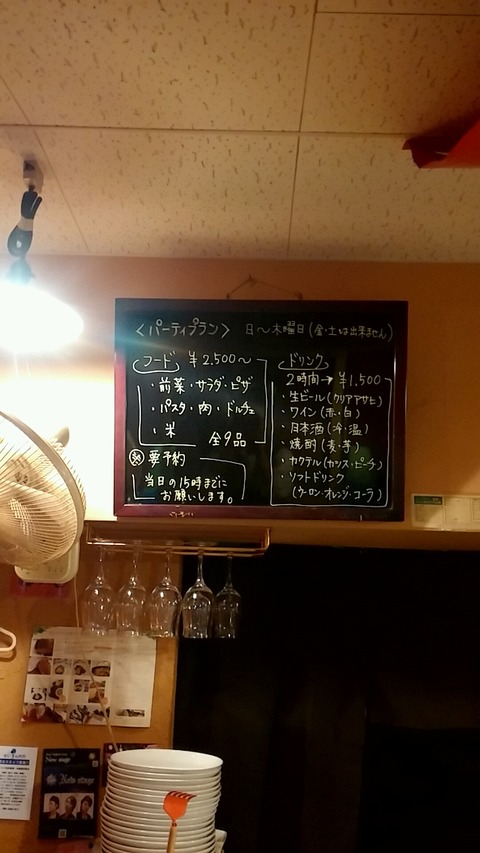 〈パーティプラン〉 日～木曜日(金・土は出来ません)
フード ￥2.500～
・前菜・サラダ・ピザ
・パスタ・肉・ドルチェ
・米 全9品
要予約
当日の15時までに
お願いします。
ドリンク
2時間→￥1.500
・生ビール(クリアアサヒ)
・ワイン(赤・白)
・日本酒(冷・温)
・焼酎(麦・芋)
・カクテル(カシス・ピーチ)
・ソフトドリンク
(ウーロン・オレンジ・コーラ)
New stage
New stage